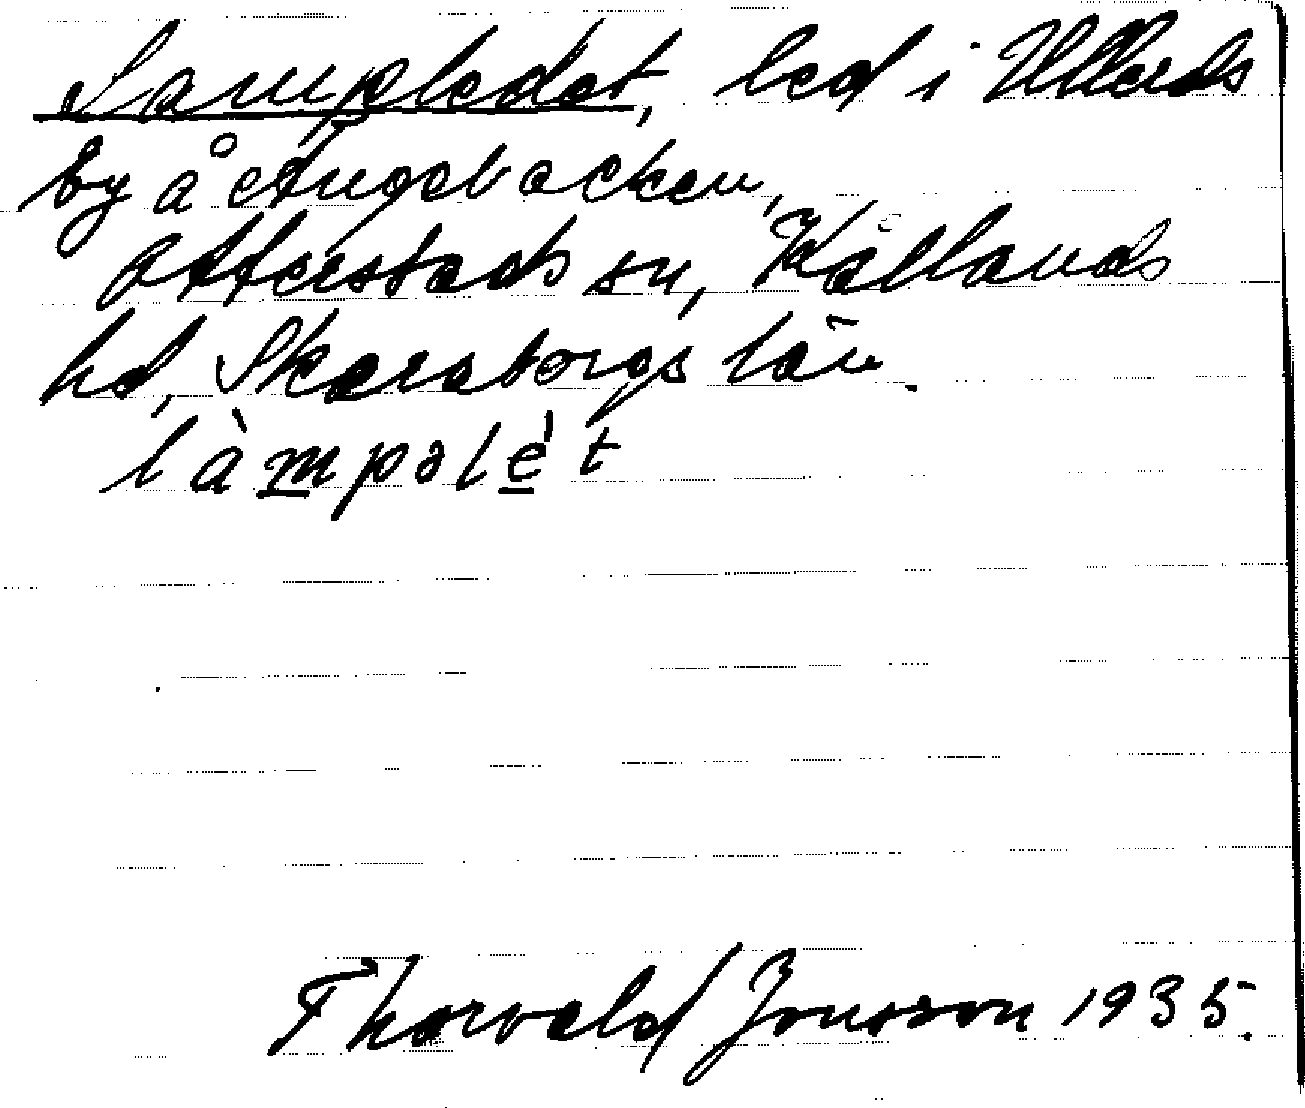 Lampledet, led i Ullerds
by å Ängebacken,
Otterstads sn, Kållands
hd, Skaraborgs län.
làmpəlèt
Thorvald Jonsson 1935.